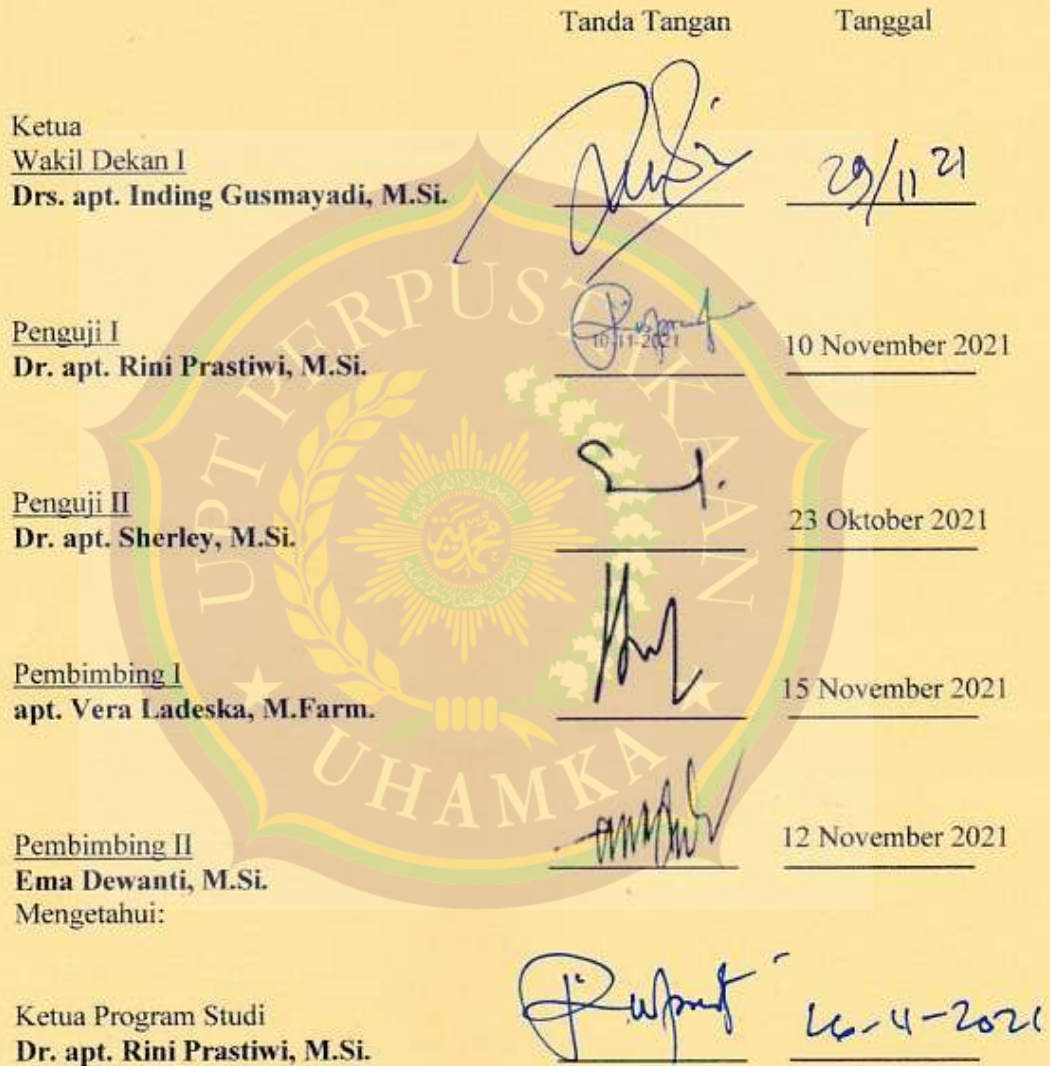 Tanda Tangan Tanggal
Ketua
Wakil Dekan I
Drs. apt. Inding Gusmayadi, M.Si. 29/11 21
Penguji I
10-11-2021
Dr. apt. Rini Prastiwi, M.Si. 10 November 2021
Penguji II
Dr. apt. Sherley, M.Si. 23 Oktober 2021
Pembimbing I
apt. Vera Ladeska, M.Farm. 15 November 2021
Pembimbing II 12 November 2021
Ema Dewanti, M.Si.
Mengetahui:
Ketua Program Studi
Dr. apt. Rini Prastiwi, M.Si.
UPT PERPUSTAKAAN
UHAMKA